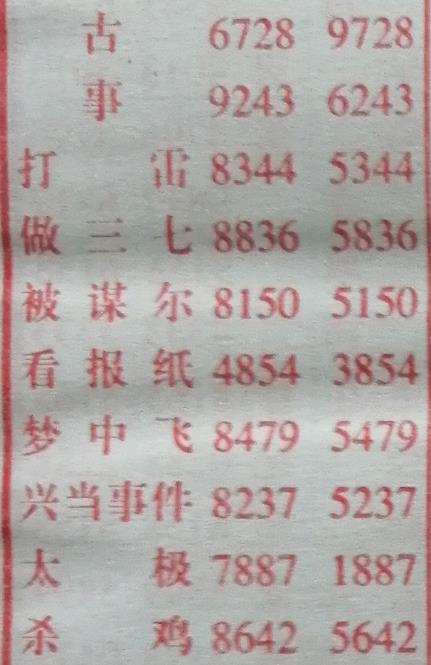 古 6728 9728
事 9243 6243
打雷 8344 5344
做三七 8836 5836
被谋尔 8150 5150
看报纸 4854 3854
梦中飞 8479 5479
兴当事件 8237 5237
太极 7887 1887
杀鸡 8642 5642